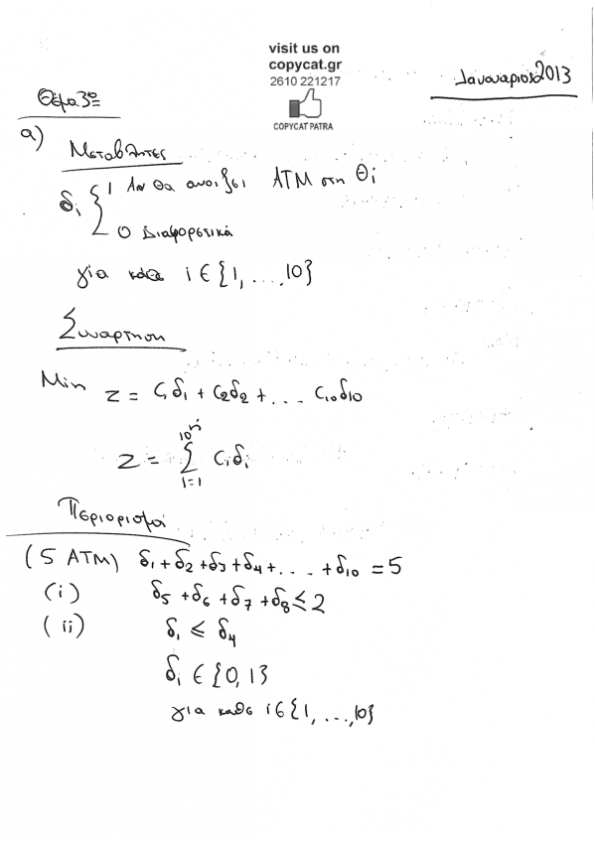 visit us on
copycat.gr
2610 221217
COPYCAT PATRA
Ιανουαριος 2013
Θέμα 3º
α)
Μεταβλητες
δi { 1 Αν θα ανοιξει ATM στη Θi
0 Διαφορετικά
για καθε i ∈ {1, ...., 10}
Συναρτηση
Min z = C1δ1 + C2δ2 + ... C10δ10
z = 10 Σ i=1 Ciδi
Περιορισμοί
(5 ATM) δ1 + δ2 + δ3 + δ4 + ... + δ10 = 5
(i) δ5 + δ6 + δ7 + δ8 ≤ 2
(ii) δ1 ≤ δ4
δi ∈ {0,1}
για καθε i ∈ {1, ..., 10}